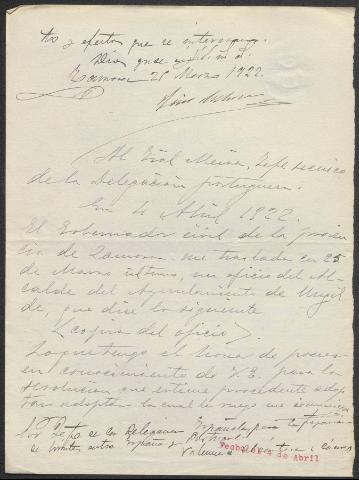 tos y efectos que se interesan.
Dios gue
Zamora 25 Marzo 1922.
Al Exmo Jefe tecnico
de la Delegacion portuguesa.
En 4 Abril 1922.
El Gobernador civil de la provin
cia de Zamora me traslada en 25
de Marzo último, un oficio del Al-
calde del Ayuntamiento de
de, que dice lo siguiente
<copia del oficio>.
Lo que tengo el honor de poner
en conocimiento de V.E. para la
resolucion que estime procedente adop
tar la cual le ruego me comunique
Sor Jefe de la Delegacion Española para la
de limites entre España y Portugal
Valencia de Alcántara
Fecho en 4 de Abril